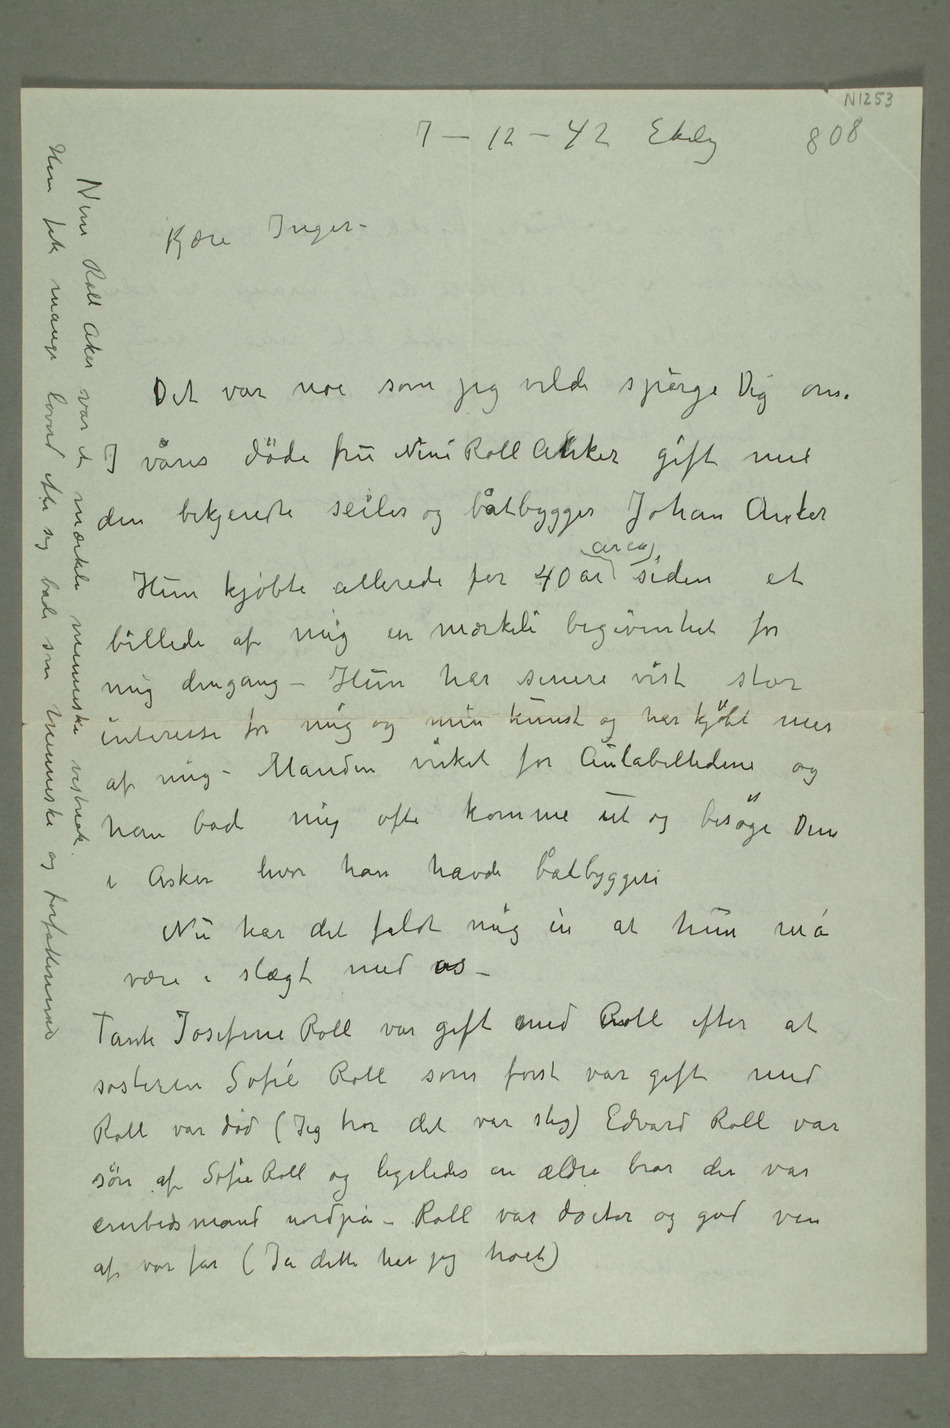 N1253
808
7 – 12 – 42 Ekely
Kjære Inger –
Det var noe som jeg vilde spørge Dig om.
I våres döde fru Nini Roll Anker gift med
den bekjendte seiler og båtbygger Johan Anker
Hun kjøbte allerede for 40 år (circa) siden et
billede af mig en mærkeli begivenhet for
mig dengang – Hun har senere vist stor
interesse for mig og min kunst og har kjøbt mer
af mig – Manden virket for Aulabilledene og
han bad mig ofte komme ut og besøge Dem
i Asker hvor han havde båtbyggeri
Nu har det faldt mig in at hun må
være i slægt med os –
Tante Josefine Roll var gift med Roll efter at
søsteren Sofie Roll som først var gift med
Roll var død (Jeg tror det var slig) Edvard Roll var
søn af Sofie Roll og ligeledes en ældre bror der var
embedsmand nordpå – Roll var doctor og god ven
af vor far (Ja dette har jeg troet)
Nini Roll Aker var et mærkeli menneske vistnok.
Hun fik mange lovord efter sig både som menneske og forfatterinne